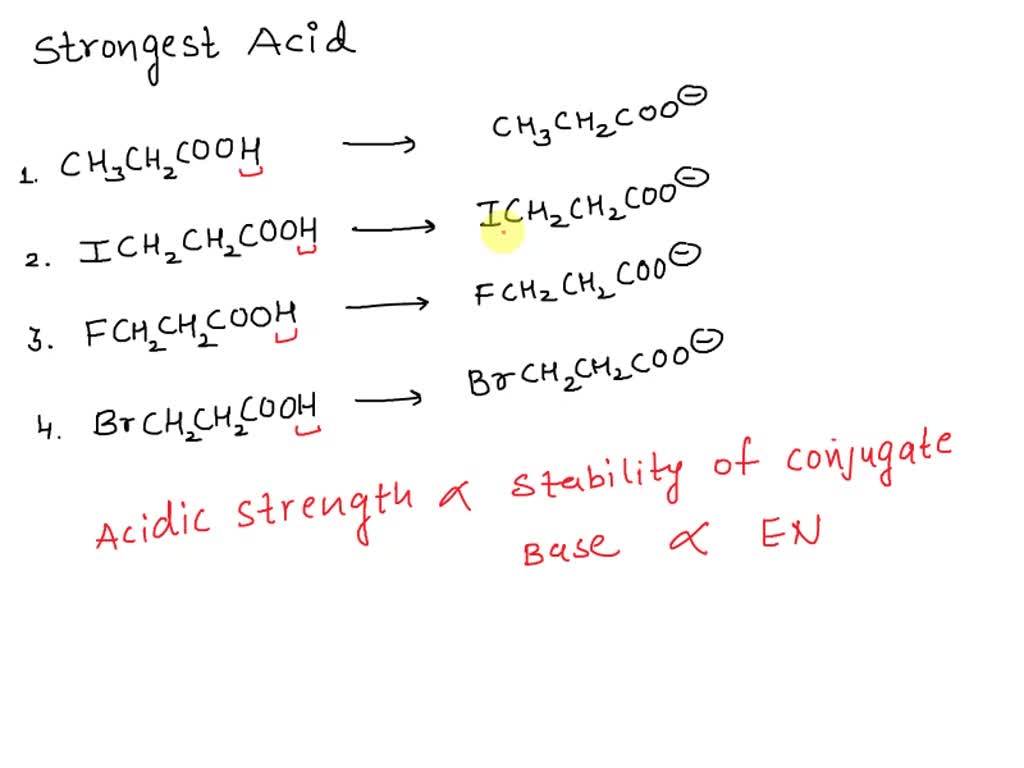 Strongest Acid
1. CH₃CH₂COOH → CH₃CH₂COO⊖
2. ICH₂CH₂COOH → ICH₂CH₂COO⊖
3. FCH₂CH₂COOH → FCH₂CH₂COO⊖
4. BrCH₂CH₂COOH → BrCH₂CH₂COO⊖
Acidic strength ∝ stability of conjugate
Base ∝ EN